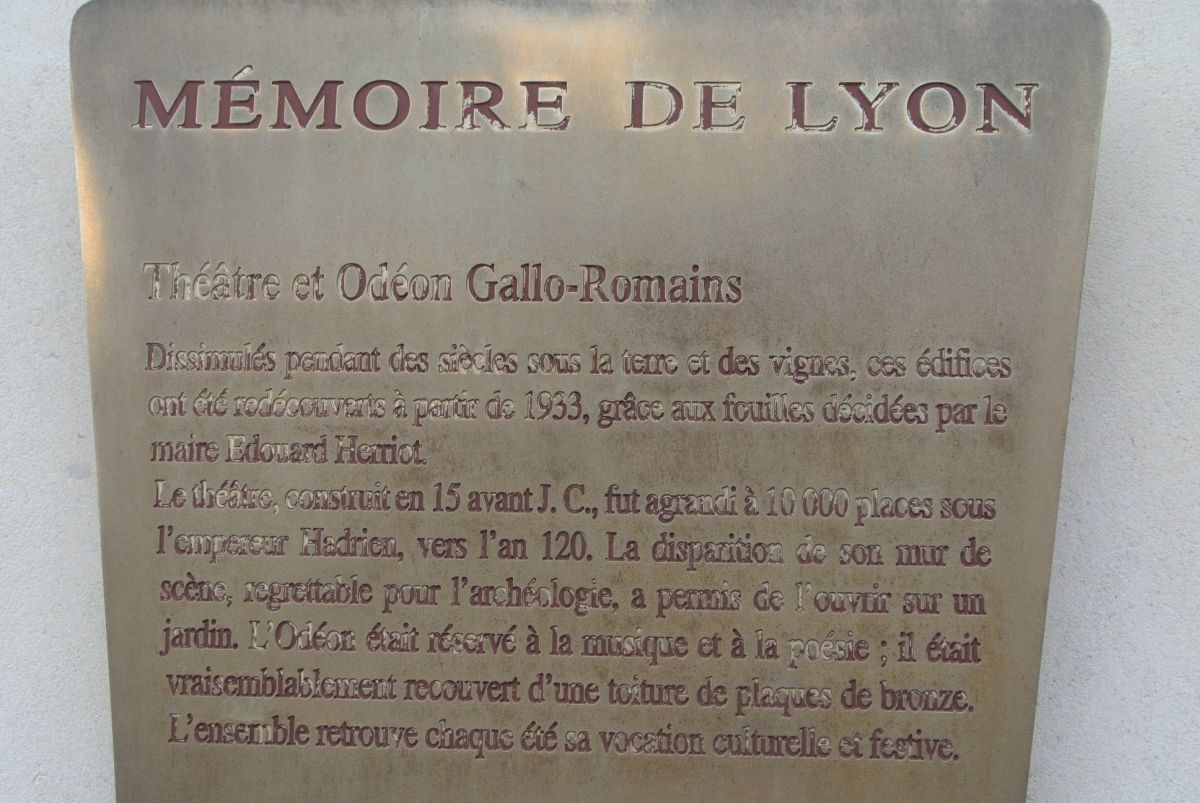 MÉMOIRE DE LYON
Théâtre et Odéon Gallo-Romains
Dissimulés pendant des siècles sous la terre et des vignes, ces édifices
ont été redécouverts à partir de 1933, grâce aux fouilles décidées par le
maire Edouard Herriot.
Le théâtre, construit en 15 avant J. C., fut agrandi à 10 000 places sous
l'empereur Hadrien, vers l'an 120. La disparition de son mur de
scène, regrettable pour l'archéologie, a permis de l'ouvrir sur un
jardin. L'Odéon était réservé à la musique et à la poésie ; il était
vraisemblablement recouvert d'une toiture de plaques de bronze.
L'ensemble retrouve chaque été sa vocation culturelle et festive.